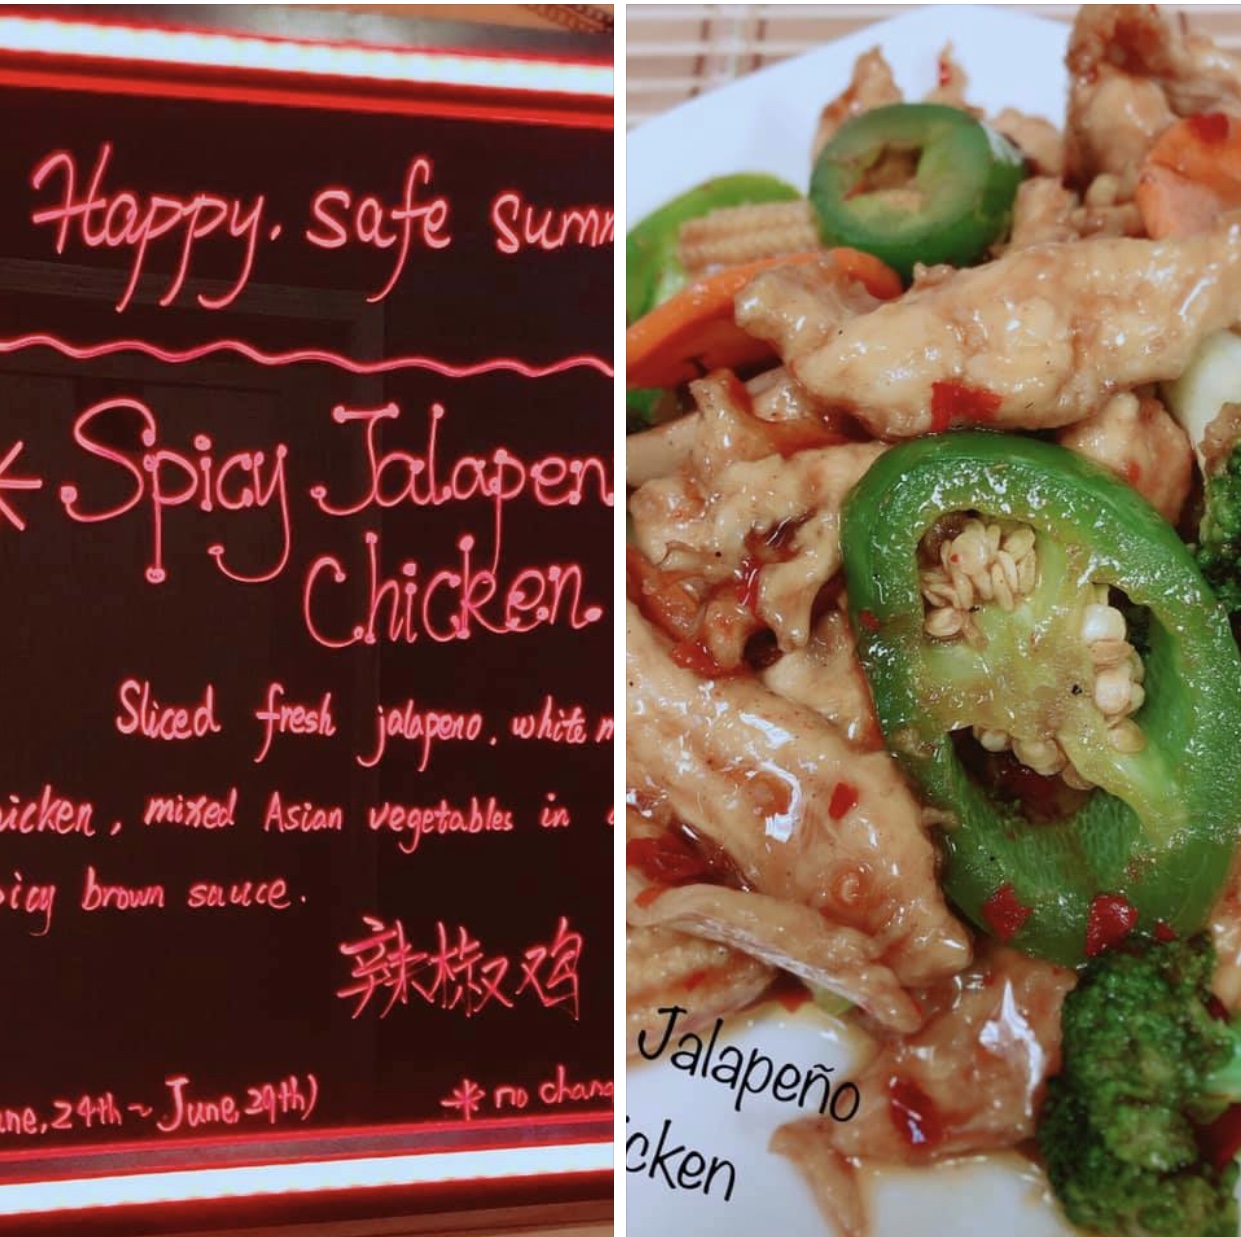 Happy. safe summ
* Spicy Jalapen
Chicken.
Sliced fresh jalapeno. white m
icken, mixed Asian vegetables in a
picy brown sauce.
辣椒鸡
une, 24th ~ June, 29th)
* no chang
Jalapeño
icken